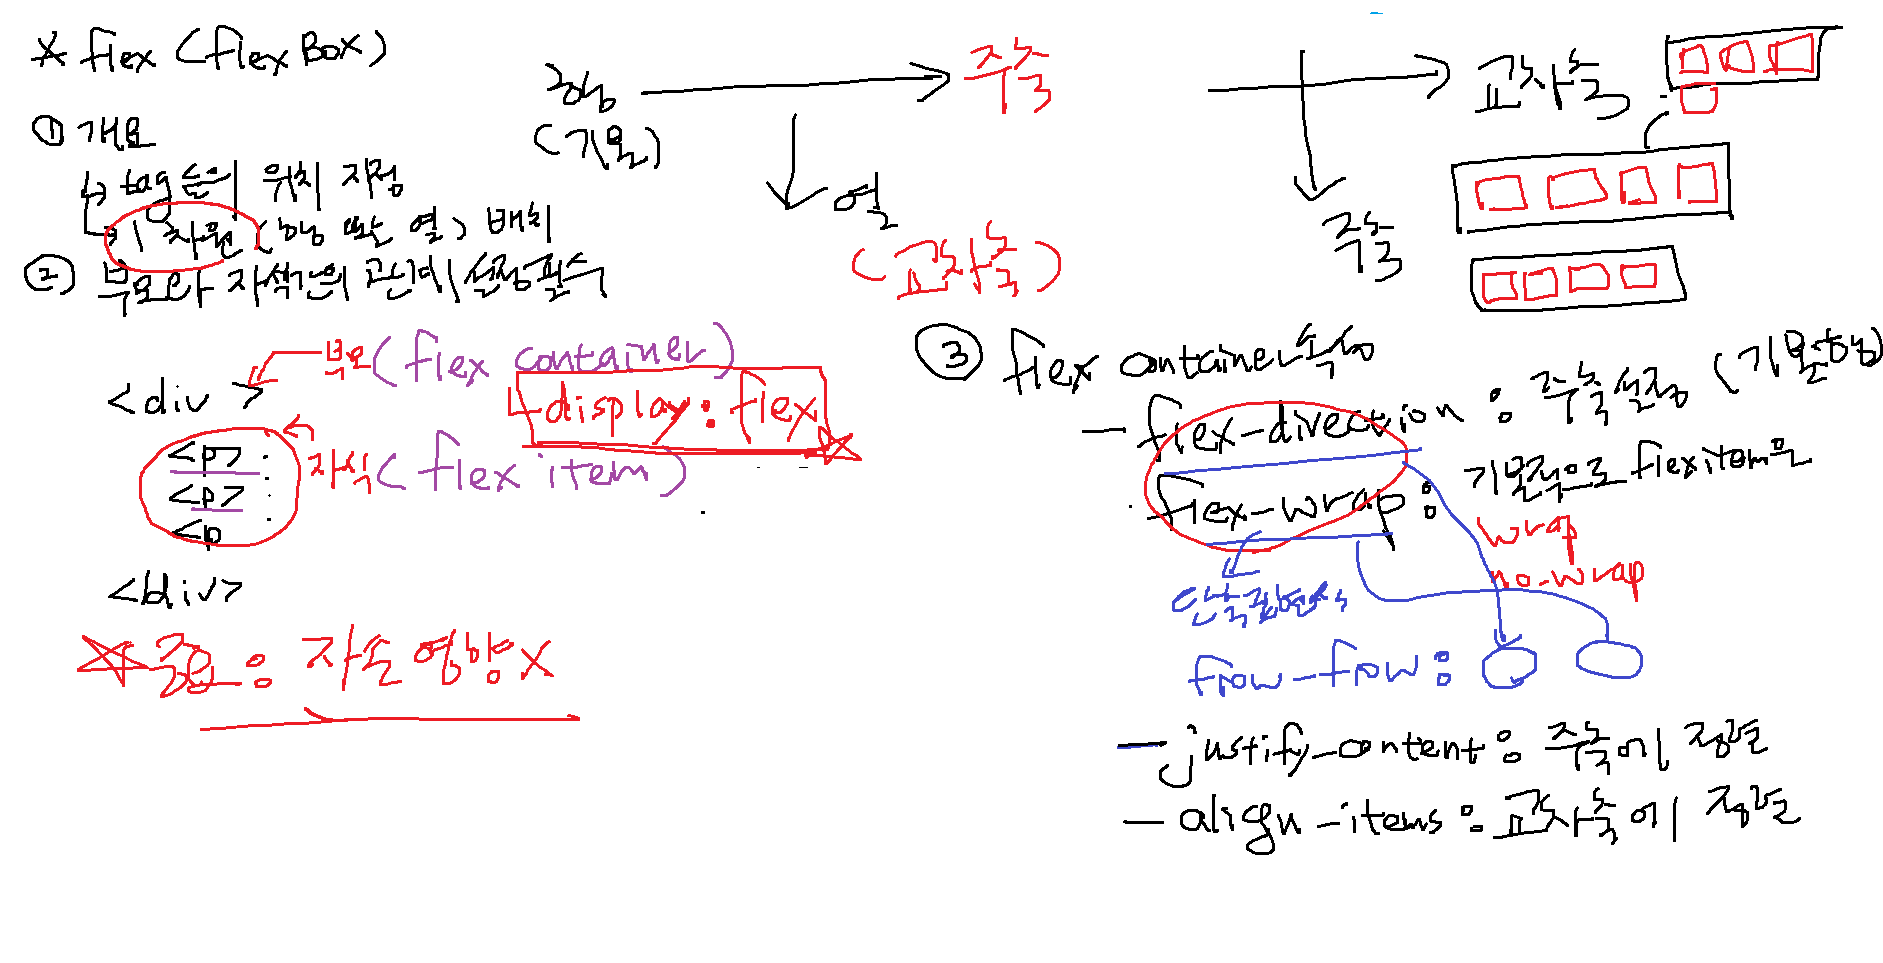 * flex (flex Box)
① 개요
↳ tag들의 위치 지정
↳ 1차원 (행 또는 열) 배치
② 부모와 자식간의 관계 설정필수
행 → 주축
(기본)
↓ 열
(교차축)
→ 교차축
↓ 주축
<div > ← 부모 (flex container)
↳ display : flex
<p> :
<p> :
<p
← 자식 (flex item)
<div>
☆ 중요 : 자손 영향 x
③ flex container 속성
- flex-direction : 주축설정 (기본행)
flex-wrap : 기본적으로 flex item은
wrap
no-wrap
단축표현식
frow-frow :
- justify-content : 주축에 정렬
- align-items : 교차축에 정렬